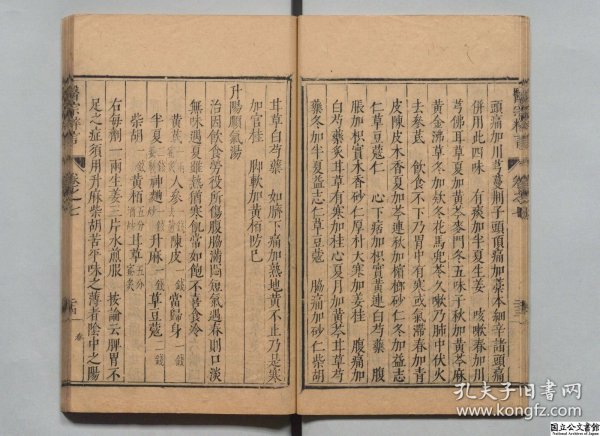 頭痛加川芎蔓荆子頭頂痛加藁本細辛諸頭痛
併用此四味 有痰加半夏生姜 咳嗽春加川
芎佛耳草夏加黄芩麥門冬五味子秋加黄芩麻
黄金沸草冬加欵冬花馬兜苓久嗽乃肺中伏火
去參芪 飲食不下乃胃中有寒或氣滯春加青
皮陳皮木香夏加芩連秋加檳榔砂仁冬加益志
仁草豆蔻仁 心下痞加枳實黄連白芍藥 腹
脹加枳實木香砂仁厚朴大寒加姜桂 腹痛加
白芍藥炙耳草有寒加桂心夏月加黄芩耳草芍
藥冬加半夏益志仁草豆蔻 脇痛加砂仁柴胡
耳草白芍藥 如臍下痛加熟地黄不止乃是寒
加官桂 脚軟加黄栢防已
升陽順氣湯
治因飲食勞役所傷腹脇滿悶短氣遇春則口淡
無味遇夏雖熱猶寒飢常如飽不喜食冷
黄芪 人參 陳皮 當歸身
半夏 神麯 升麻 草豆蔻
柴胡 黄栢 耳草
右每劑一兩生姜三片水煎服 按論云脾胃不
足之症須用升麻柴胡苦平味之薄者陰中之陽
卷之七
孔夫子旧書网
www.kongfz.com
国立公文書館
National Archives of Japan